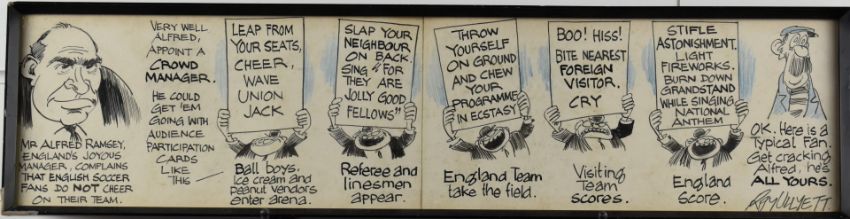 MR ALFRED RAMSEY,
ENGLAND'S JOYOUS
MANAGER, COMPLAINS
THAT ENGLISH SOCCER
FANS DO NOT CHEER
ON THEIR TEAM.
VERY WELL
ALFRED,
APPOINT A
CROWD
MANAGER.
HE COULD
GET 'EM
GOING WITH
AUDIENCE
PARTICIPATION
CARDS
LIKE
THIS —
LEAP FROM
YOUR SEATS,
CHEER,
WAVE
UNION
JACK
Ball boys,
ice cream and
peanut vendors
enter arena.
SLAP YOUR
NEIGHBOUR
ON BACK.
SING "FOR
THEY ARE
JOLLY GOOD
FELLOWS"
Referee and
linesmen
appear.
THROW
YOURSELF
ON GROUND
AND CHEW
YOUR
PROGRAMME
IN ECSTASY
England Team
take the field.
BOO! HISS!
BITE NEAREST
FOREIGN
VISITOR.
CRY
Visiting
Team
scores.
STIFLE
ASTONISHMENT.
LIGHT
FIREWORKS.
BURN DOWN
GRANDSTAND
WHILE SINGING
NATIONAL
ANTHEM
England
Score.
O.K. Here is a
Typical Fan.
Get cracking
Alfred, he's
ALL YOURS.
ROY ULLYETT